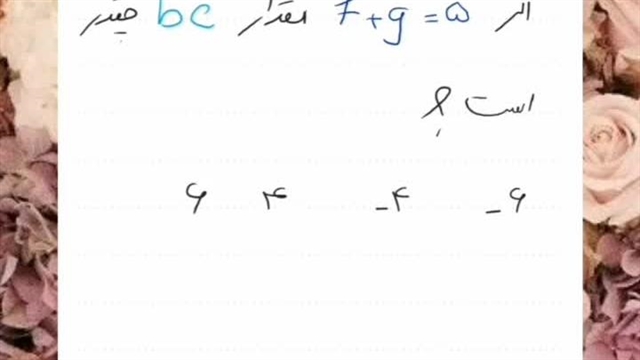 اگر f+g=۵ مقدار bc چقدر
است ؟
۶ ۴ -۴ -۶